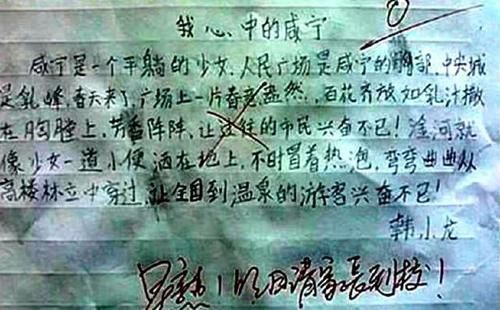 我心中的咸宁
0
咸宁是一个平躺的少女,人民广场是咸宁的胸部,中央城
是乳峰,春天来了,广场上一片春意盎然,百花齐放如乳汁撒
在胸膛上,芳香阵阵,让过往的市民兴奋不已!淦河就
像少女一道小便洒在地上,不时冒着热泡,弯弯曲曲从
高楼林立中穿过,让全国到温泉的游客兴奋不已!
韩小龙
早熟!明日请家长到校!